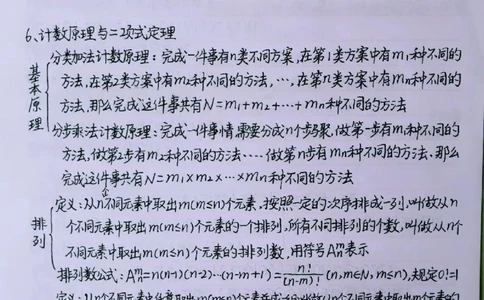 6、计数原理与二项式定理
分类加法计数原理：完成一件事有n类不同方案，在第1类方案中有m₁种不同的
方法，在第2类方案中有m₂种不同的方法，…，在第n类方案中有mn种不同的
方法，那么完成这件事共有N=m₁+m₂+…+mn种不同的方法
基本原理
分步乘法计数原理：完成一件事情，需要分成n个步骤，做第一步有m₁种不同的
方法，做第2步有m₂种不同的方法……做第n步有mn种不同的方法、那么
完成这件事共有N=m₁×m₂×…×mn种不同的方法
定义：从n个不同元素中取出m(m≤n)个元素，按照一定的次序排成一列，叫做从n
个不同元素中取出m(m≤n)个元素的一个排列，所有不同排列的个数，叫做从n个
不同元素中取出m(m≤n)个元素的排列数，用符号Aₙᵐ表示
排列
排列数公式：Aₙᵐ=n(n-1)(n-2)…(n-m+1)=n!/(n-m)!(n,m∈N,m≤n)，规定0!=1